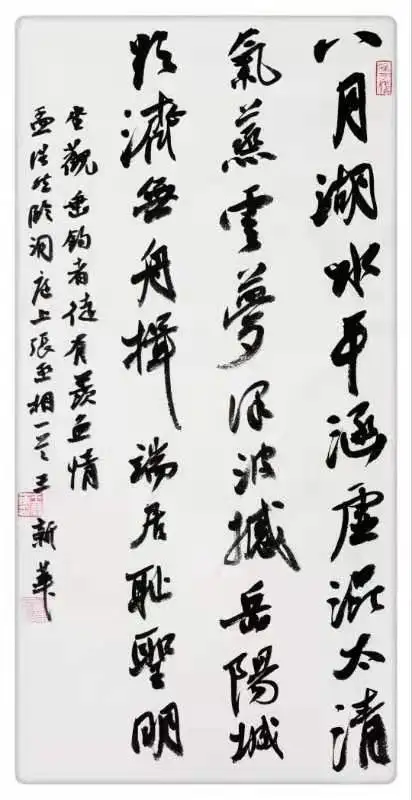 八月湖水平涵虚混太清
氣蒸雲夢澤波撼岳陽城
欲濟無舟揖端居耻聖明
坐觀垂釣者徒有羨魚情
孟浩然臨洞庭上張丞相一首 王新華